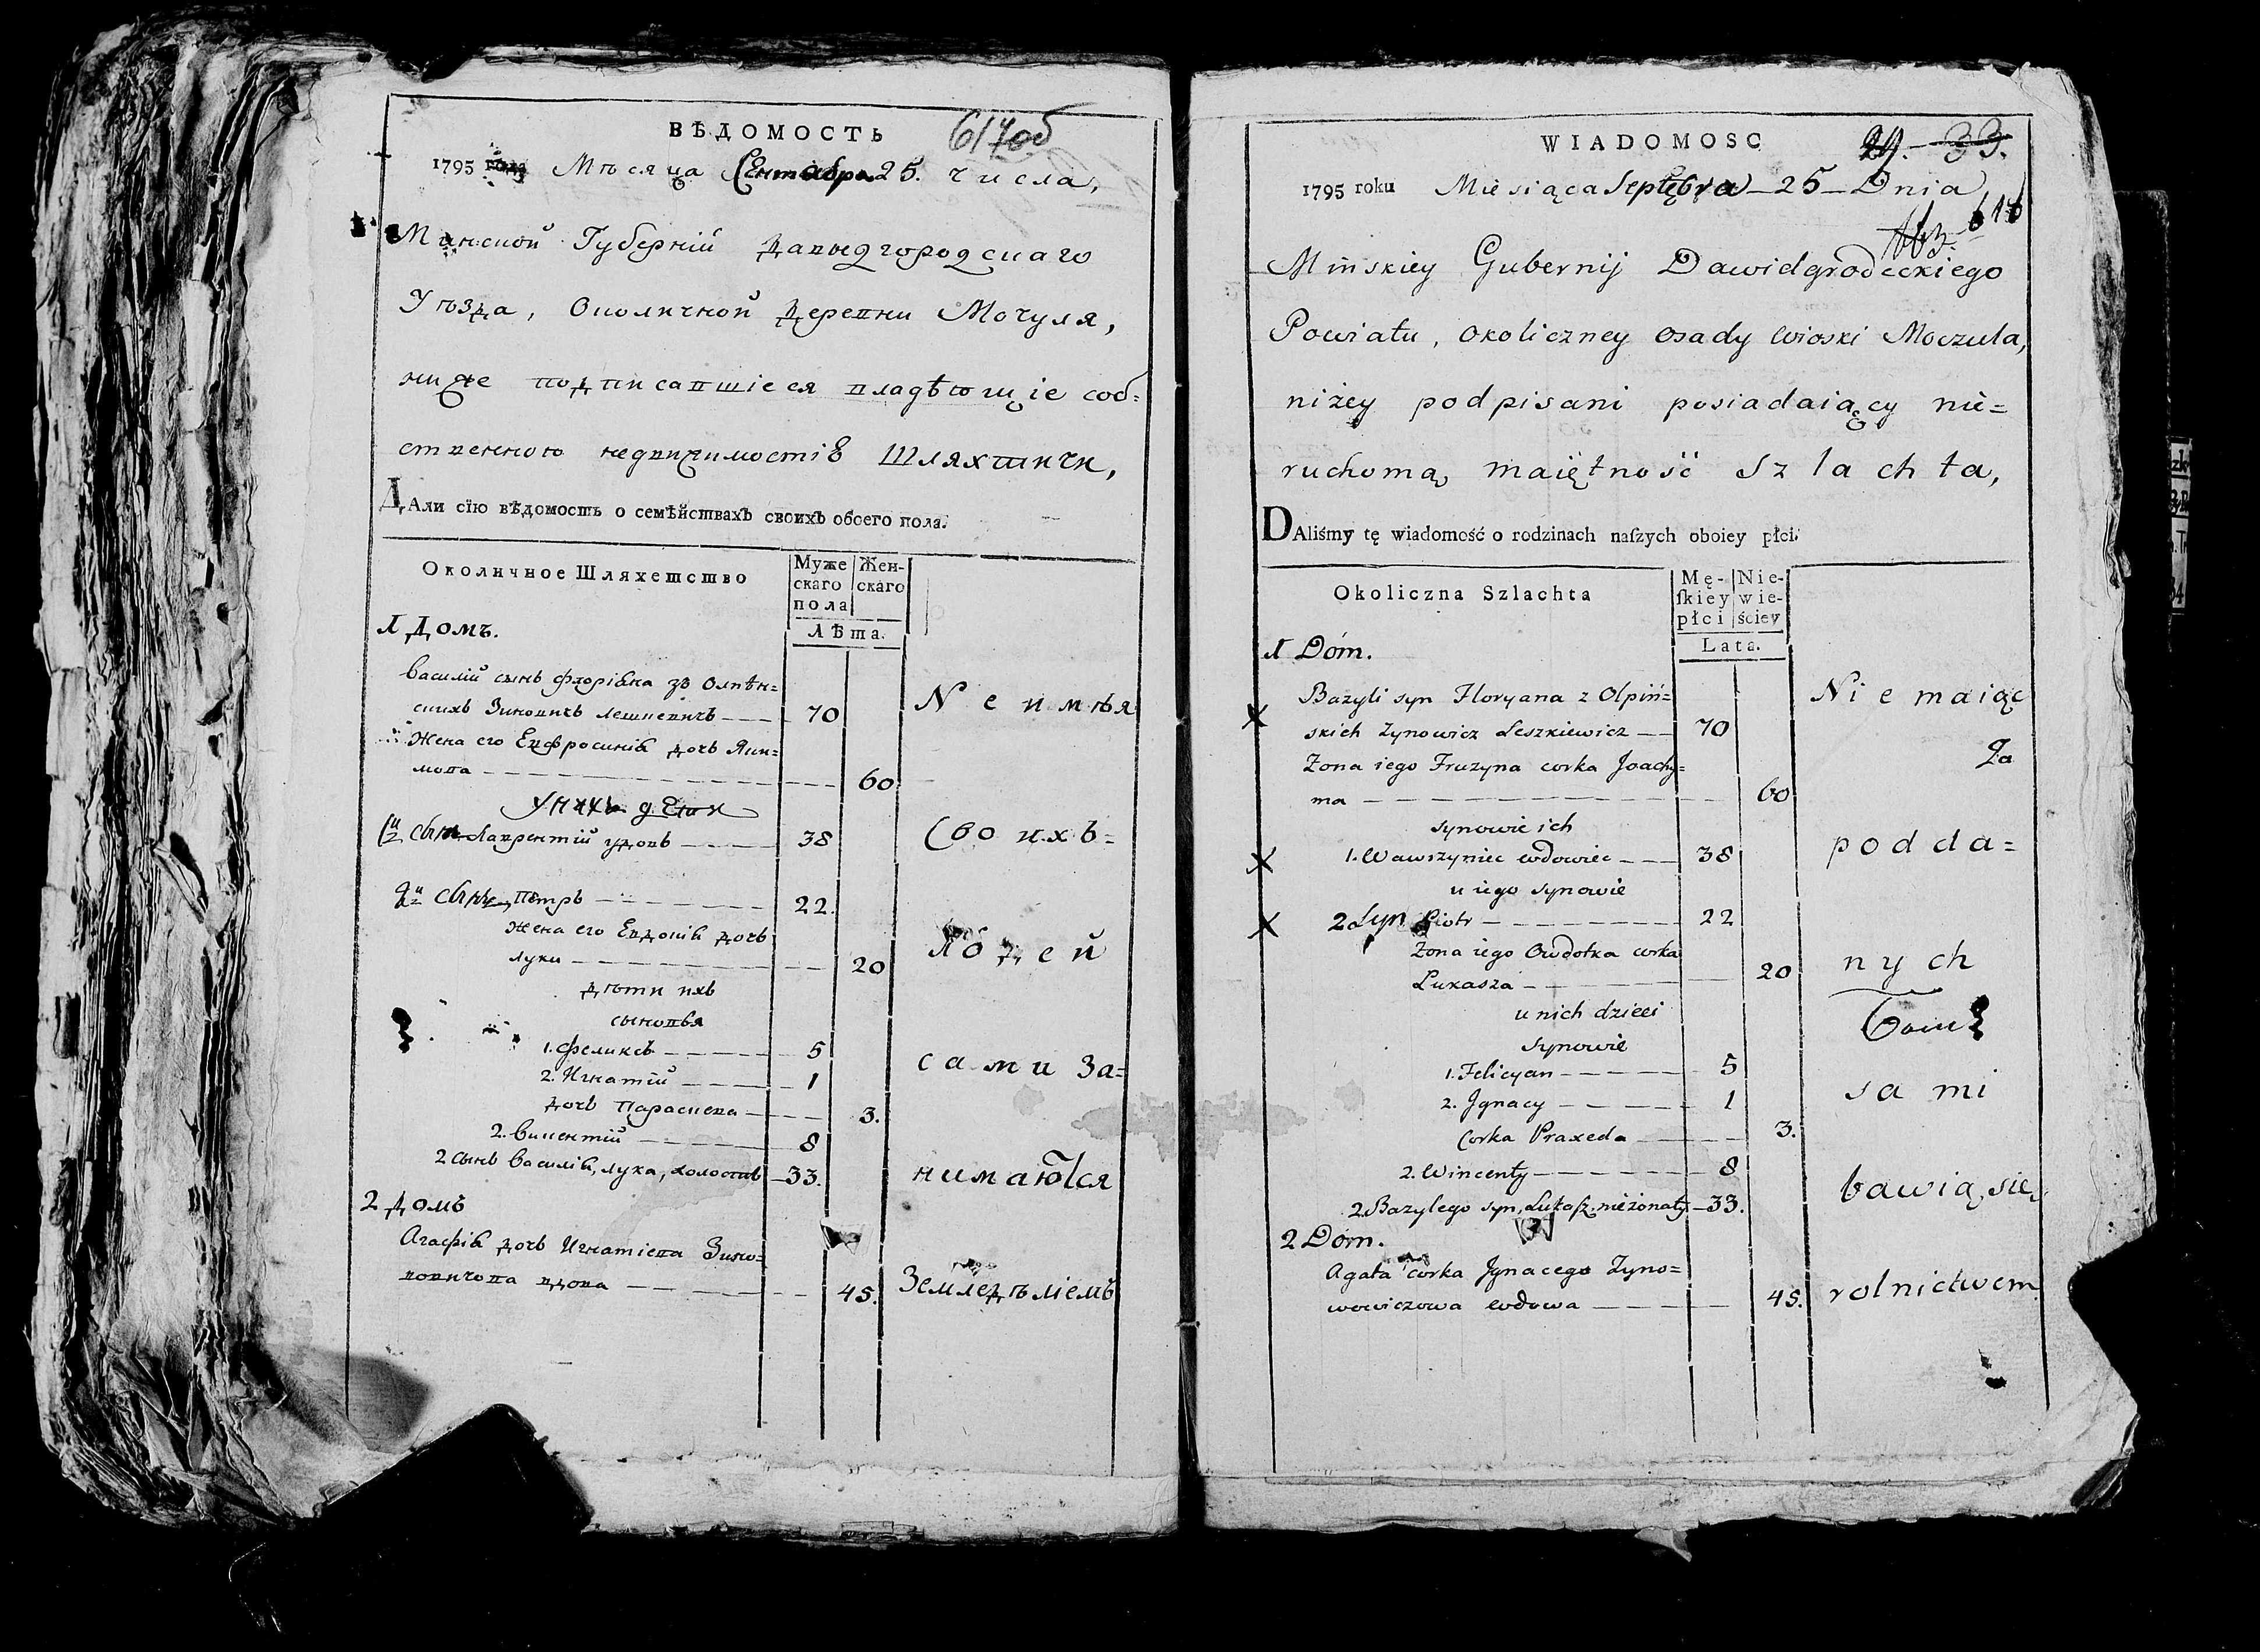 ВѢДОМОСТЬ
617об
1795 года Мѣсяца Сентября 25. числа,
Минской Губерніи Давыдгородскаго
Уѣзда, Околичной деревни Мочуля,
ниже подписавшіеся владѣющіе соб=
ственною недвижимостію Шляхтичи,
ДАли сїю вѣдомость о семѣйствахъ своихъ обоего пола.
Околичное Шляхетство
Муже
скаго
пола
Жен-
скаго
Лѣта.
1 Домъ.
Василій сынъ Флоріана зъ Олпѣн=
скихъ Зиновичъ Лешкевичъ — 70
Жена его Евфросинія дочь Яки=
мова — 60
У нихъ дети
1й сынъ Лаврентій удовъ — 38
2й сынъ Петръ — 22.
Жена его Евдокія дочь
Луки — 20
дѣти ихъ
сыновья
1. Феликсъ — 5
2. Игнатій — 1
дочь Парасковя — 3.
2. Викентій — 8
2 сынъ Василія, Лука, холостъ — 33.
2 домъ
Агафія дочь Игнатіева Зино=
вовичова вдова — 45.
Не имѣя
Своихъ=
людей
сами за=
нимаются
Земледѣліемъ
WIADOMOSC
29. 33.
1795 roku Miesiąca Septębra — 25 — Dnia
618
Mińskiey Gubernij Dawidgrodeckiego
Powiatu, okoliczney osady wioski Moczula,
niżey podpisani posiadaiący nie=
ruchomą maiętność Szlachta,
DAliśmy tę wiadomość o rodzinach naſzych oboiey płci.
Okoliczna Szlachta
Mę-
ſkiey
płci
Nie-
wie-
ściey
Lata.
1 Dóm.
Bazyli syn Floryana z Olpiń=
skich Zynowicz Leszkiewicz — 70
Zona iego Fruzyna corka Joachy=
ma — 60
synowie ich
1. Wawrzyniec wdowiec — 38
u iego synowie
2 Syn Piotr — 22
Zona iego Owdotka corka
Lukasza — 20
u nich dzieci
synowie
1. Felicyan — 5
2. Jgnacy — 1
Corka Praxeda — 3.
2. Wincenty — 8
2. Bazylego syn, Lukaſz nieżonaty — 33.
2 Dóm.
Agata corka Jgnacego Zyno=
wowiczowa wdowa — 45.
Nie maiąc
podda=
nych
sami
bawią się
rolnictwem